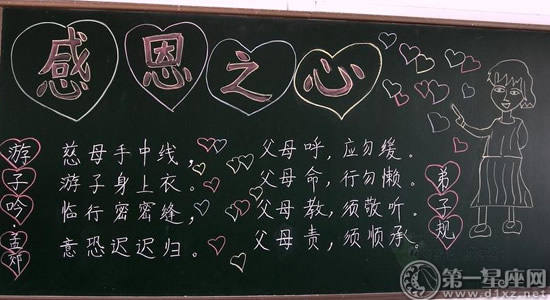 感恩之心
游子吟·孟郊
慈母手中线，
游子身上衣。
临行密密缝，
意恐迟迟归。
父母呼，应勿缓。
父母命，行勿懒。
父母教，须敬听。
父母责，须顺承。
弟子规
第一星座网
www.d1xz.net